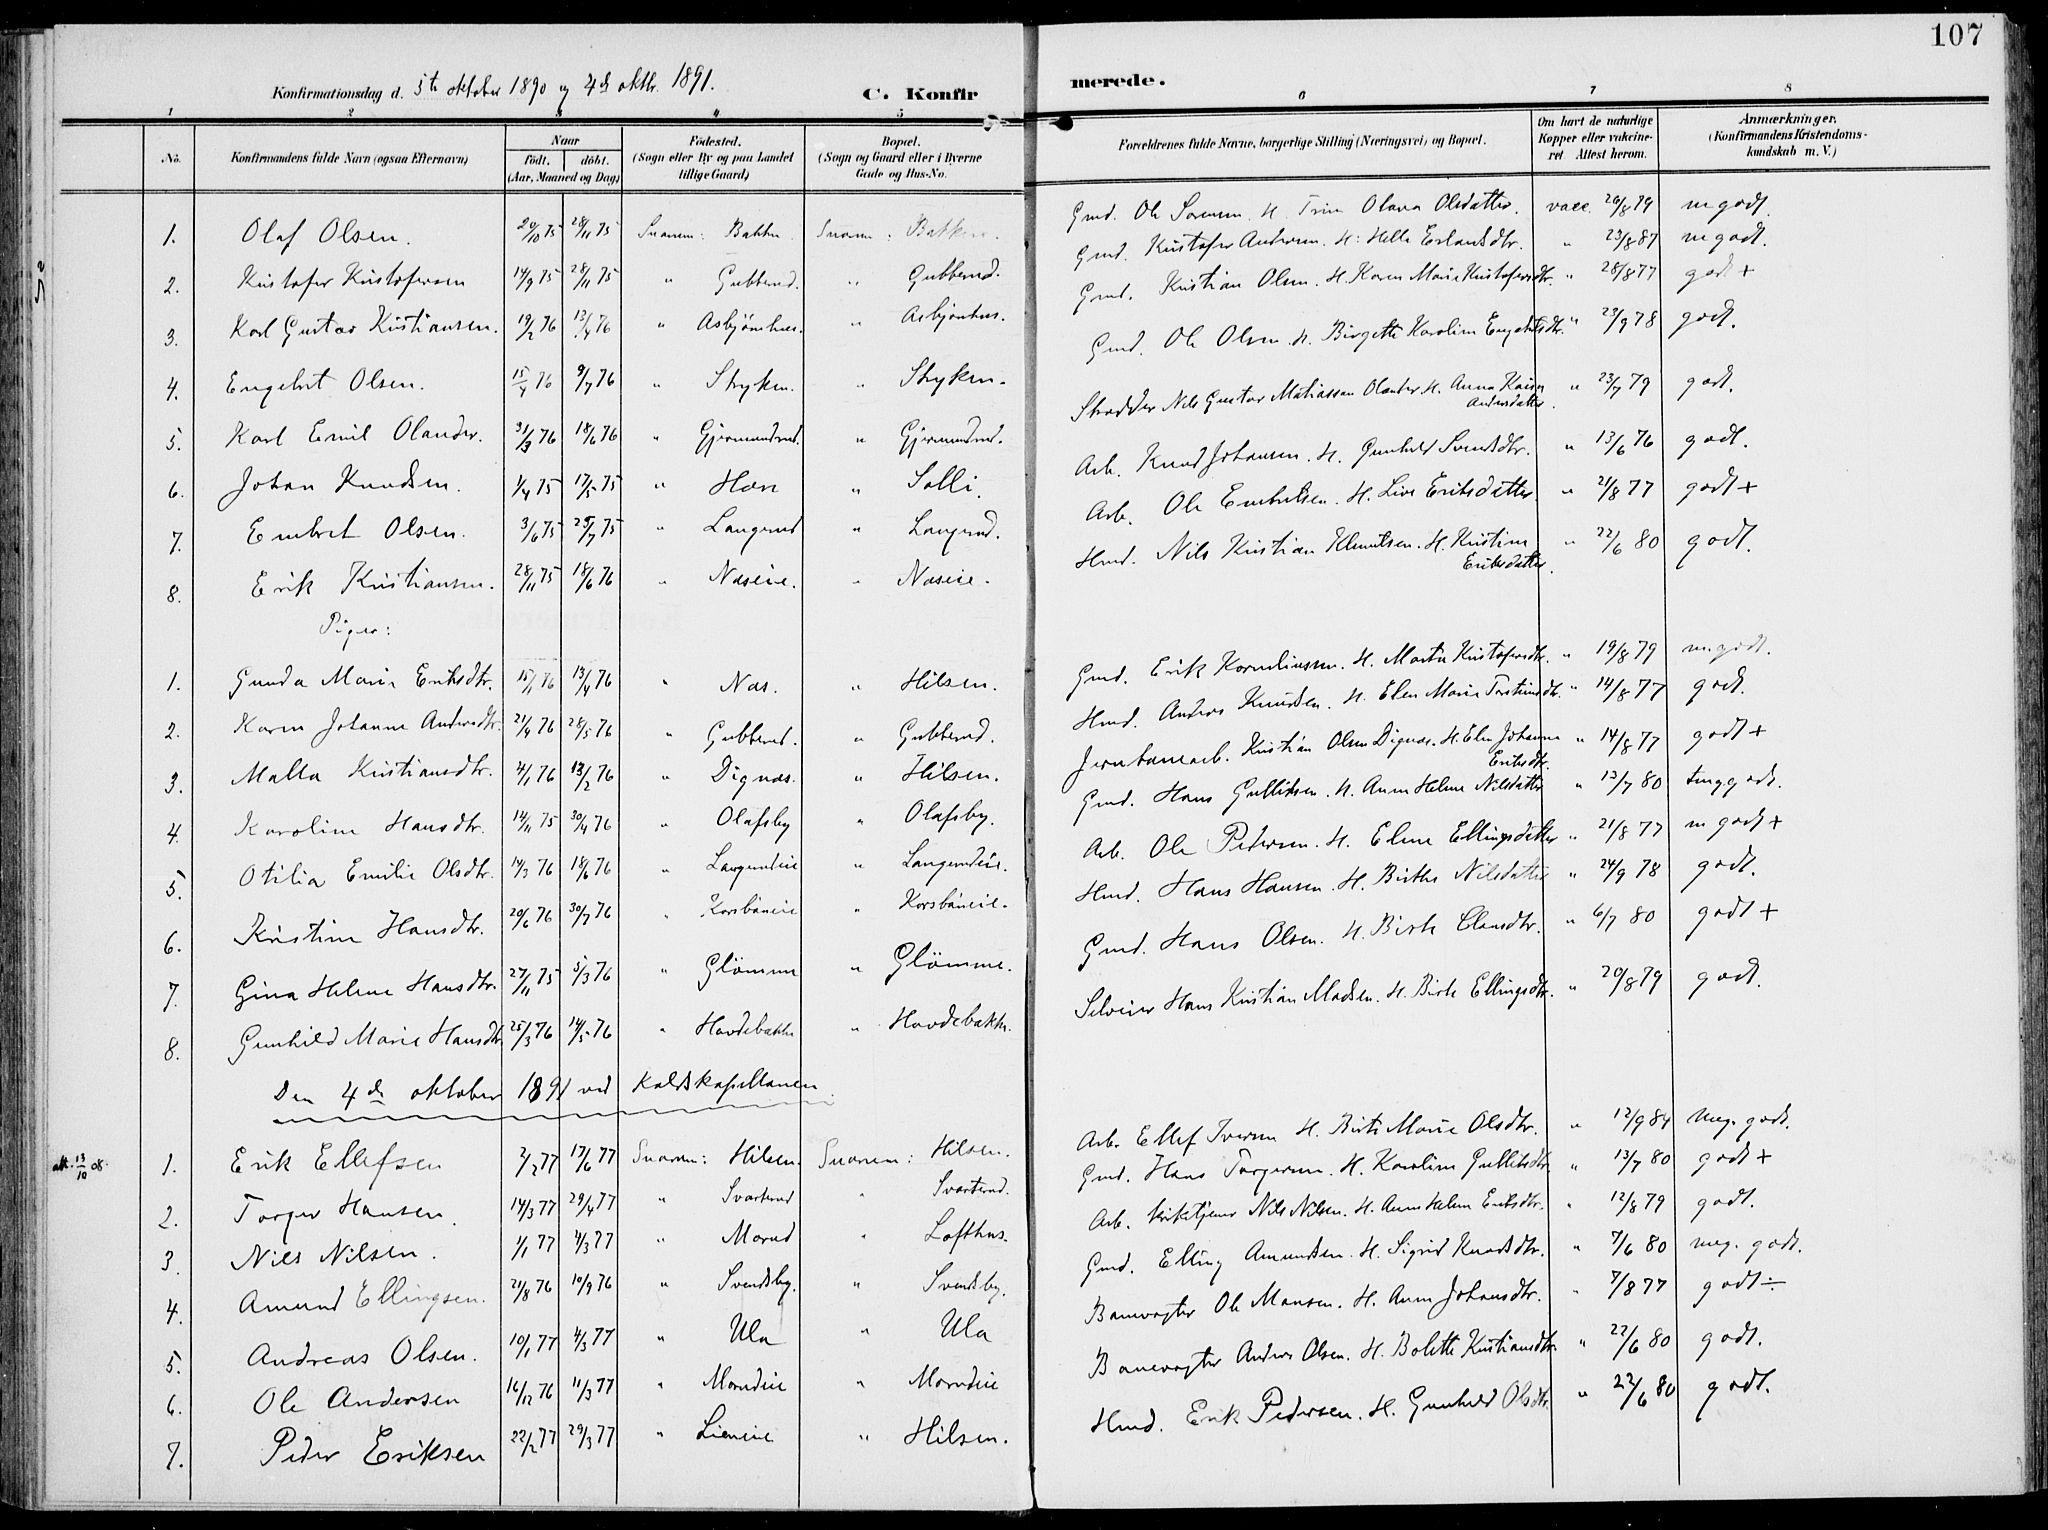 107
Konfirmationsdag d. 5te oktober 1890 og 4de oktbr. 1891.
C. Konfirmerede.
1 2 3 4 5 6 7 8
No. Konfirmandens fulde Navn (ogsaa Efternavn) Naar födt. döbt. (Aar, Maaned og Dag) Födested. (Sogn eller By og paa Landet tillige Gaard) Bopæl. (Sogn og Gaard eller i Byerne Gade og Hus-No. Forældrenes fulde Navne, borgerlige Stilling (Næringsvei) og Bopæl. Om havt de naturlige Kopper eller vakcineret. Attest herom. Anmærkninger. (Konfirmandens Kristendomskundskab m. V.)
1. Olaf Olsen. 20/10 75 28/11 75 Snarum: Bakke Snarum: Bakken. Gmd. Ole Sorensen. H. Trine Olava Olsdatter. vacc. 26/8 79 m godt.
2. Kristofer Kristofersen 14/9 75 28/11 75 " Gubberud. " Gubberud. Gmd. Kristofer Andersen. H: Helle Erlandsdtr. " 23/8 87 m godt.
3. Karl Gustav Kristiansen. 19/2 76 13/4 76 " Asbjörnhus. " Asbjörnhus. Gmd. Kristian Olsen. H. Karen Marie Kristofersdtr. " 28/8 77 godt +
4. Engebret Olsen. 15/4 76 9/7 76 " Stryken. " Stryken. Gmd. Ole Olsen. H. Birgette Karoline Engebretsdtr. " 23/9 78 godt.
5. Karl Emil Olander. 31/3 76 18/6 76 " Gjermundrud. " Gjermundrud. Skrædder Nils Gustav Matiassen Olander H. Anna Kaisa Andersdatter. " 23/7 79 godt.
6. Johan Knudsen. 1/4 75 17/5 75 " Hæn " Solli. Arb. Knud Johansen. H. Gunhild Svendsdtr. " 13/6 76 godt.
7. Embret Olsen. 3/6 75 25/7 75 " Langerud " Langerud. Arb. Ole Embretsen. H. Live Eriksdatter " 21/8 77 godt +
8. Erik Kristiansen. 28/11 75 18/6 76 " Næseie. " Næseie. Hmd. Nils Kristian Klemetsen. H. Kristine Eriksdatter. " 22/6 80 godt.
Piger:
1. Gunda Marie Eriksdtr. 15/1 76 13/4 76 " Næs. " Hilsen. Gmd. Erik Korneliussen. H. Marta Kristofersdtr. " 19/8 79 m. godt.
2. Karen Johanne Andersdtr. 21/4 76 28/5 76 " Gubberud. " Gubberud. Hmd. Anders Knudsen. H. Elen Marie Torstensdtr. " 14/8 77 godt.
3. Malla Kristiansdtr. 4/1 76 13/2 76 " Dignæs. " Hilsen. Jernbanearb. Kristian Olsen Dignæs. H. Elen Johanne Eriksdtr. " 14/8 77 godt +
4. Karoline Hansdtr. 14/11 75 30/4 76 " Olafsby " Olafsby. Gmd. Hans Gulliksen. H. Anne Helene Nilsdatter " 13/7 80 temg godt.
5. Otilia Emilie Olsdtr. 14/3 76 18/6 76 " Langerudeie " Langerudeie. Arb. Ole Pedersen. H. Elene Ellingsdatter " 21/8 77 m godt +
6. Kristine Hansdtr. 20/6 76 30/7 76 " Korsbøneie " Korsbøneie. Hmd. Hans Hansen. H. Birthe Nilsdatter " 24/9 78 godt.
7. Gina Helene Hansdtr. 27/11 75 5/3 76 " Glömme " Glömme. Gmd. Hans Olsen. H. Birte Clausdtr. " 6/7 80 godt +
8. Gunhild Marie Hansdtr. 25/3 76 14/5 76 " Hovdebakke " Hovdebakke. Selveier Hans Kristian Madsen. H. Birte Ellingsdtr. " 20/8 79 godt.
Den 4de oktober 1891 ved Kaldskapellanen.
att. 13/10 08. 1. Erik Ellefsen 2/2 77 17/6 77 Snarum: Hilsen. Snarum: Hilsen. Arb. Ellef Iversen H. Birte Marie Olsdtr. " 12/9 84 meg. godt.
2. Torger Hansen. 14/3 77 29/4 77 " Svarterud " Svarterud. Gmd. Hans Torgersen. H. Karoline Gulliksdtr. " 13/7 80 godt +
3. Nils Nilsen. 1/1 77 4/3 77 " Morud " Lofthus. Arb. kirketjener Nils Nilsen. H. Anne Helene Eriksdtr. " 12/8 79 godt.
4. Amund Ellingsen. 21/8 76 10/9 76 " Svendsby. " Svendsby. Gmd. Elling Amundsen. H. Sigrid Knudsdtr. " 7/6 80 meg. godt.
5. Andreas Olsen. 10/1 77 4/3 77 " Ula " Ula Banevogter Ole Hansen. H. Anne Johansdtr. " 7/8 77 godt ÷
6. Ole Andersen 16/12 76 11/3 77 " Morudeie " Morudeie Banevogter Anders Olsen. H. Bolette Kristiansdtr. " 22/6 80 godt.
7. Peder Eriksen 22/2 77 29/3 77 " Lieneie " Hilsen. Hmd. Erik Pedersen. H. Gunhild Olsdtr. " 22/6 80 godt.